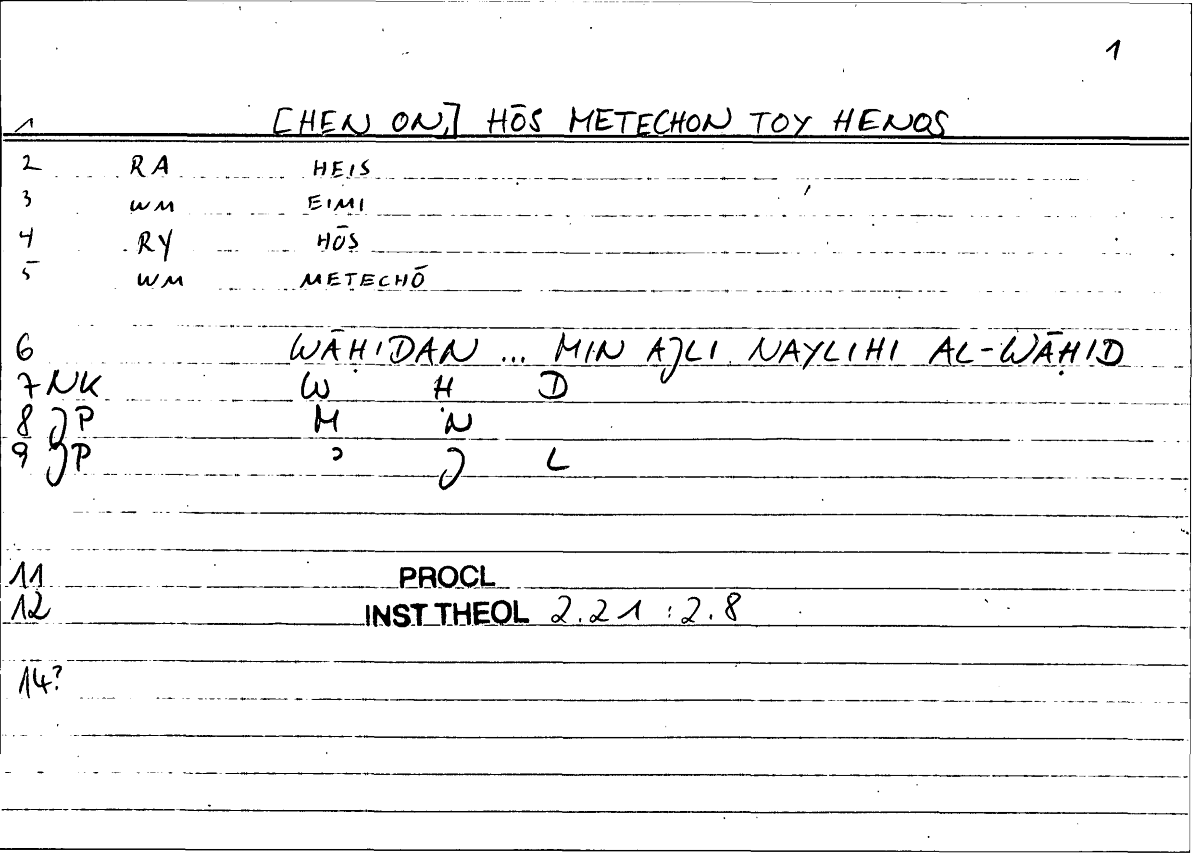 1
1 [HEN ON,] HŌS METECHON TOY HENOS
2 RA HEIS
3 WM EIMI
4 RY HŌS
5 WM METECHŌ
6 WĀḤIDAN ... MIN AJLI NAYLIHI AL-WĀḤID
7 NK W Ḥ D
8 JP M N
9 JP ʾ J L
11 PROCL
12 INST THEOL 2.21 : 2.8
14?